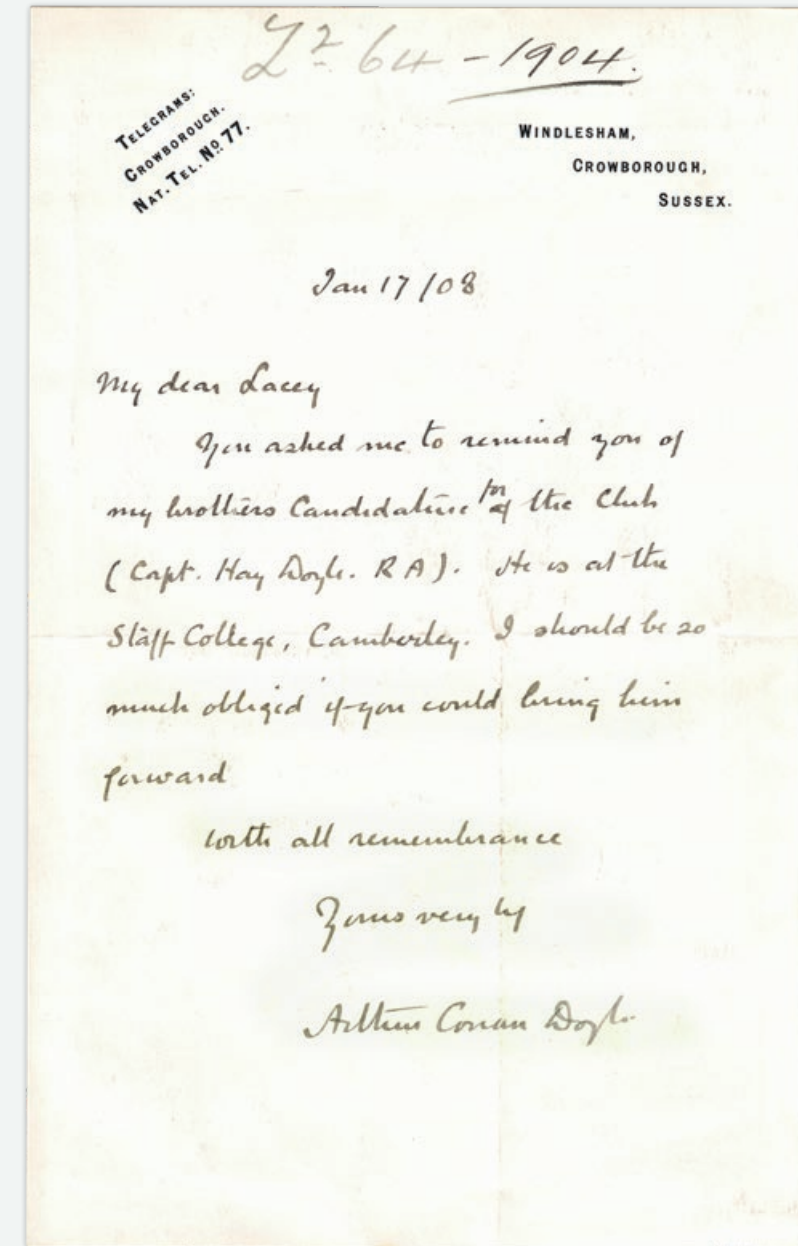 L² 64 - 1904.
TELEGRAMS:
CROWBOROUGH.
NAT. TEL. Nº 77.
WINDLESHAM,
CROWBOROUGH,
SUSSEX.
Jan 17/08
My dear Lacey
You asked me to remind you of
my brothers Candidature for the Club
(Capt. Hay Doyle. R A). He is at the
Staff College, Camberley. I should be so
much obliged if you could bring him
forward
With all remembrance
Yours very
Arthur Conan Doyle